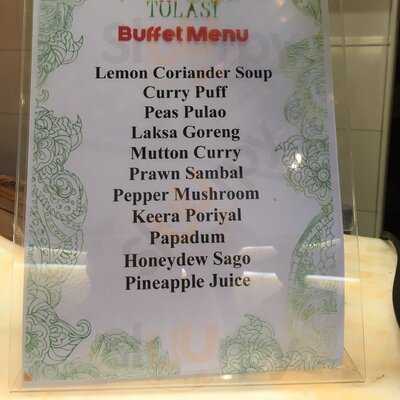 TULASI
Buffet Menu
Lemon Coriander Soup
Curry Puff
Peas Pulao
Laksa Goreng
Mutton Curry
Prawn Sambal
Pepper Mushroom
Keera Poriyal
Papadum
Honeydew Sago
Pineapple Juice